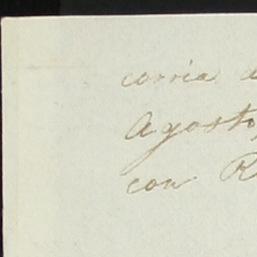 corria d
Agosto,
con R